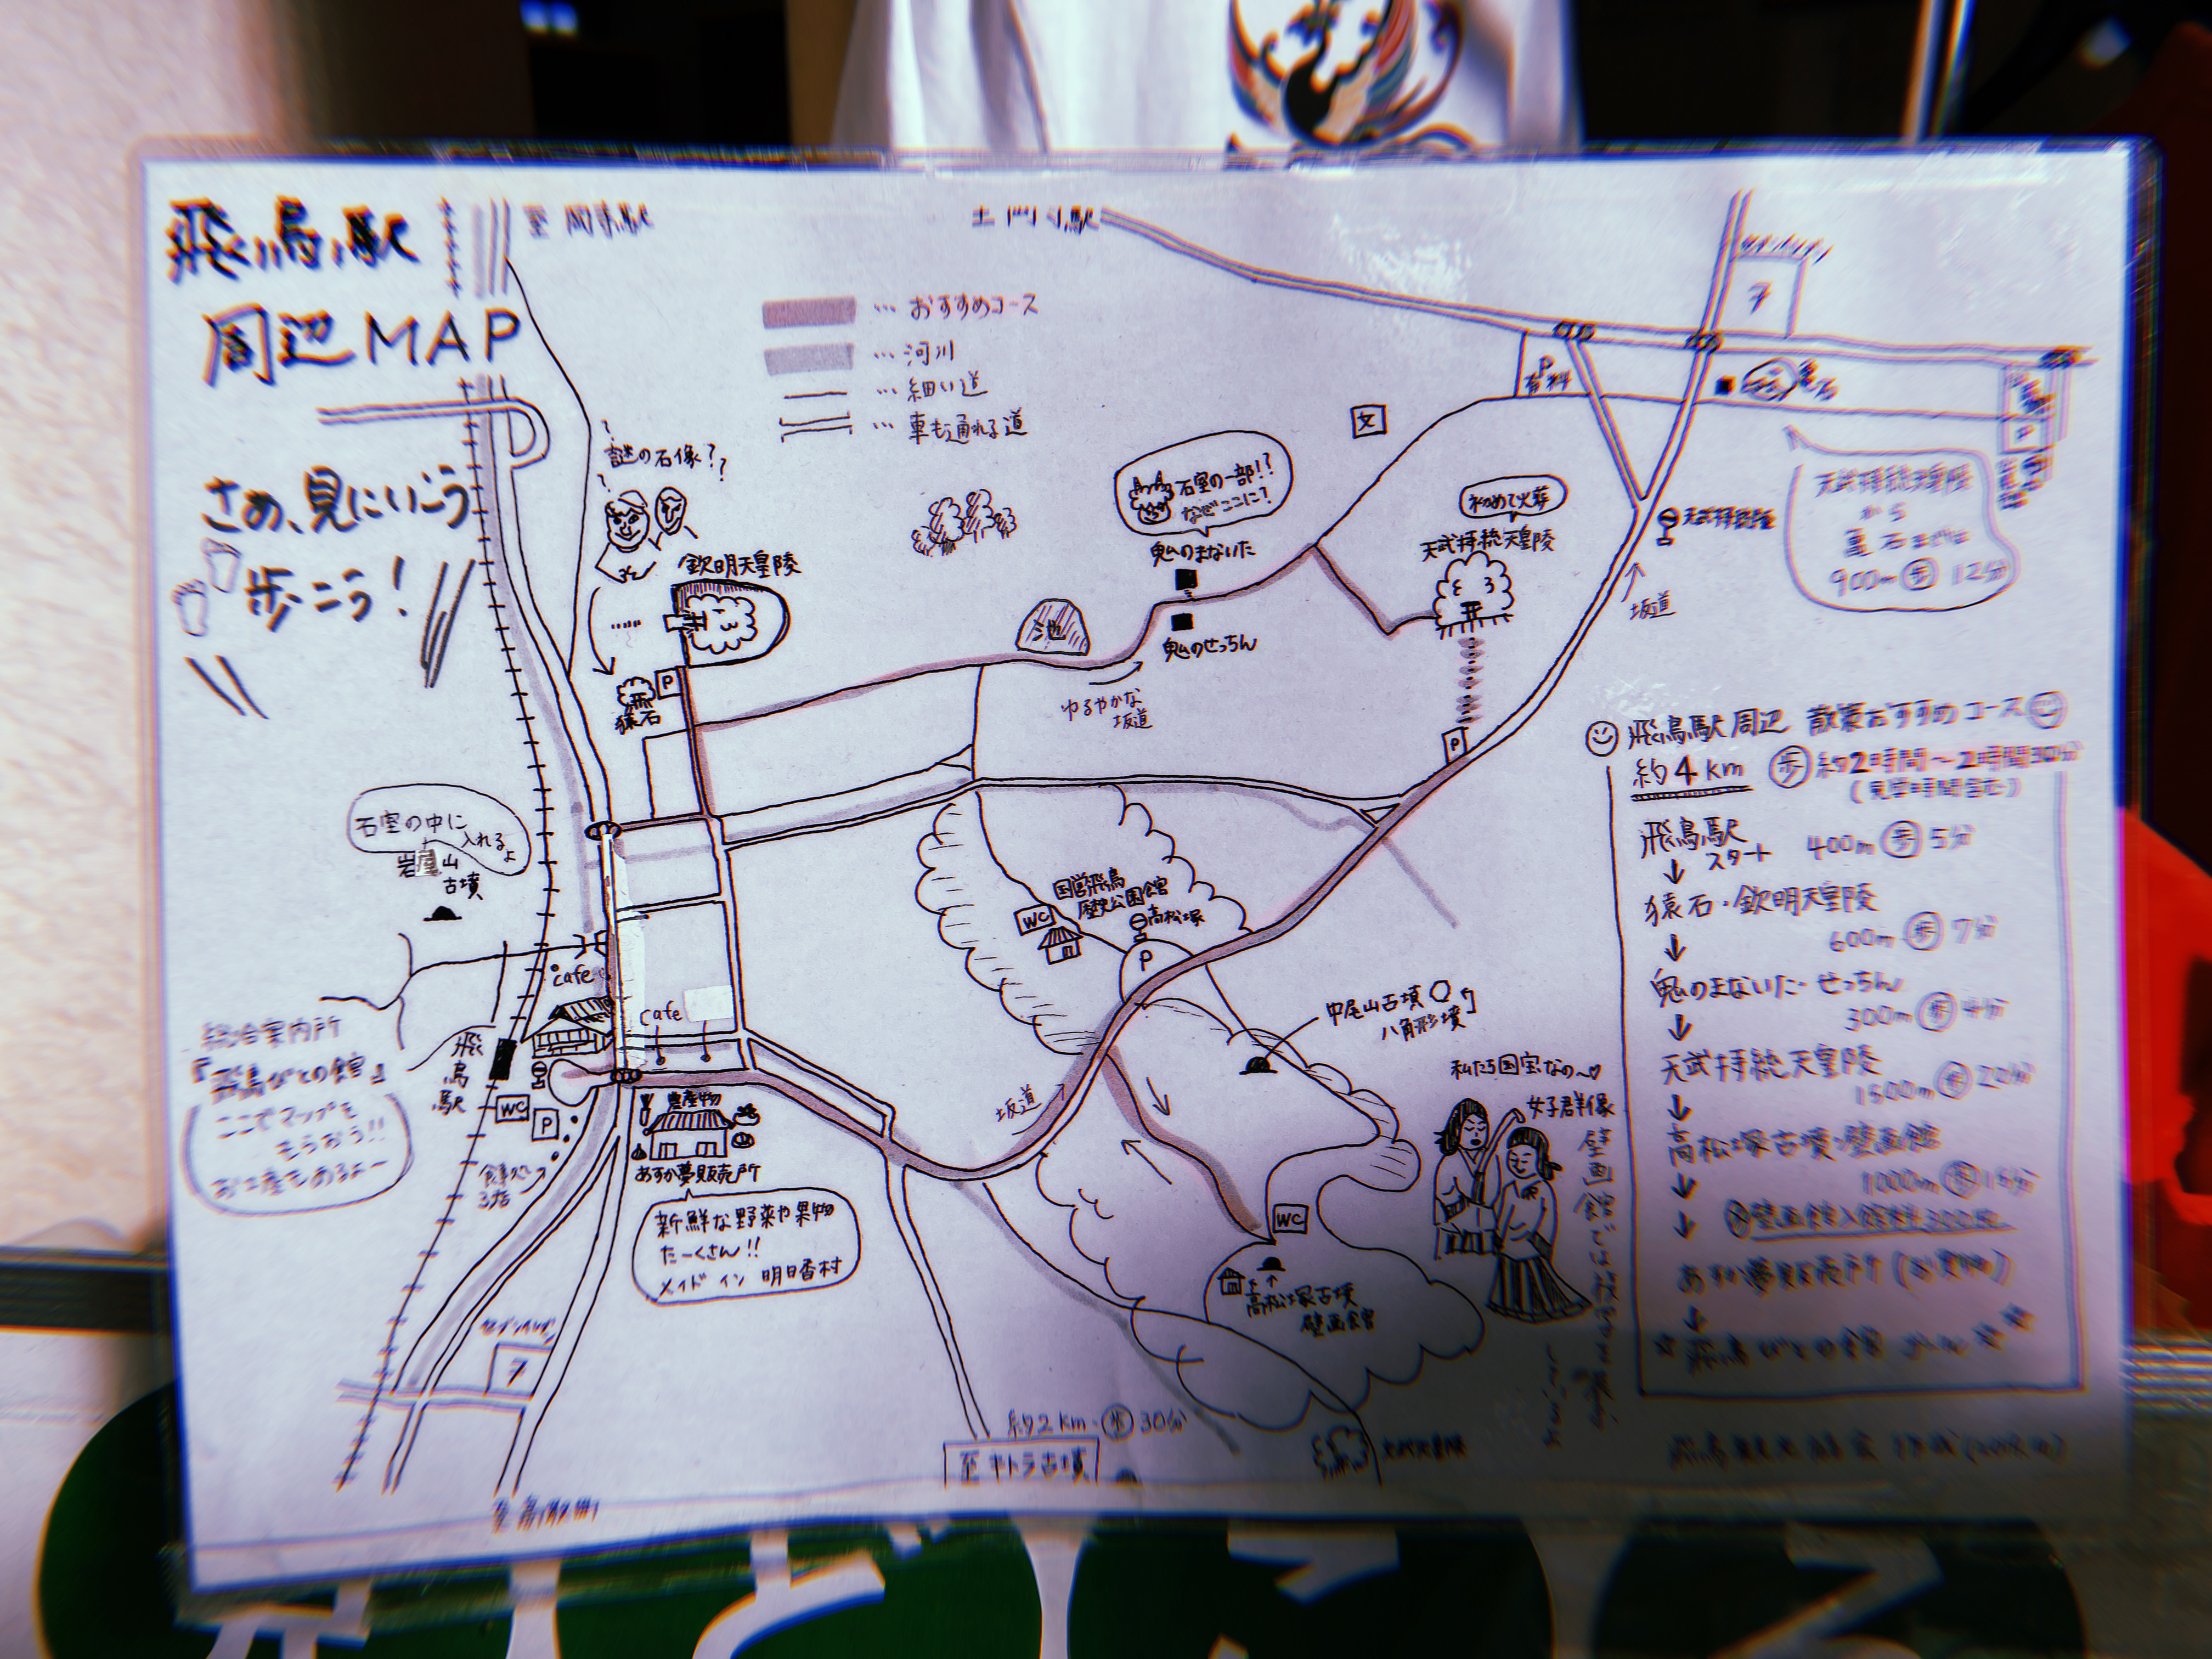 飛鳥駅
周辺MAP
さぁ、見にいこう
歩こう!
至 岡寺駅
…おすすめコース
…河川
…細い道
…車も通れる道
7
P
有料
文
謎の石像???
欽明天皇陵
P
猿石
石室の一部!?
なぜここに?
鬼のまないた
鬼のせっちん
池
ゆるやかな
坂道
初めて火葬
天武持統天皇陵
P
天武持統陵
坂道
P
天武持統天皇陵
から
亀石までは
900m 歩 12分
石室の中に
入れるよ
岩屋山
古墳
cafe
cafe
総合案内所
『飛鳥びとの館』
ここでマップを
もらおう!!
お土産もあるよー
飛鳥駅
WC
P
食事処
3店
農産物
あすか夢販売所
新鮮な野菜や果物
たーくさん!!
メイド イン 明日香村
セブンイレブン
7
国営飛鳥
歴史公園館
WC
高松塚
P
坂道
中尾山古墳
八角形墳
私たち国宝なの~♡
女子群像
WC
高松塚古墳
壁画館
壁画館では
約2km・歩30分
至 キトラ古墳
飛鳥駅周辺 散策おすすめコース
約4km 歩 約2時間~2時間30分
(見学時間含む)
飛鳥駅
スタート
400m 歩 5分
↓
猿石・欽明天皇陵
↓ 600m 歩 7分
鬼のまないた・せっちん
↓ 300m 歩 4分
天武持統天皇陵
↓ 1500m 歩 20分
高松塚古墳・壁画館
↓ 1000m 歩 15分
↓ 壁画館入館料300円
あすか夢販売所(お買物)
↓
☆飛鳥びとの館 ゴール☆